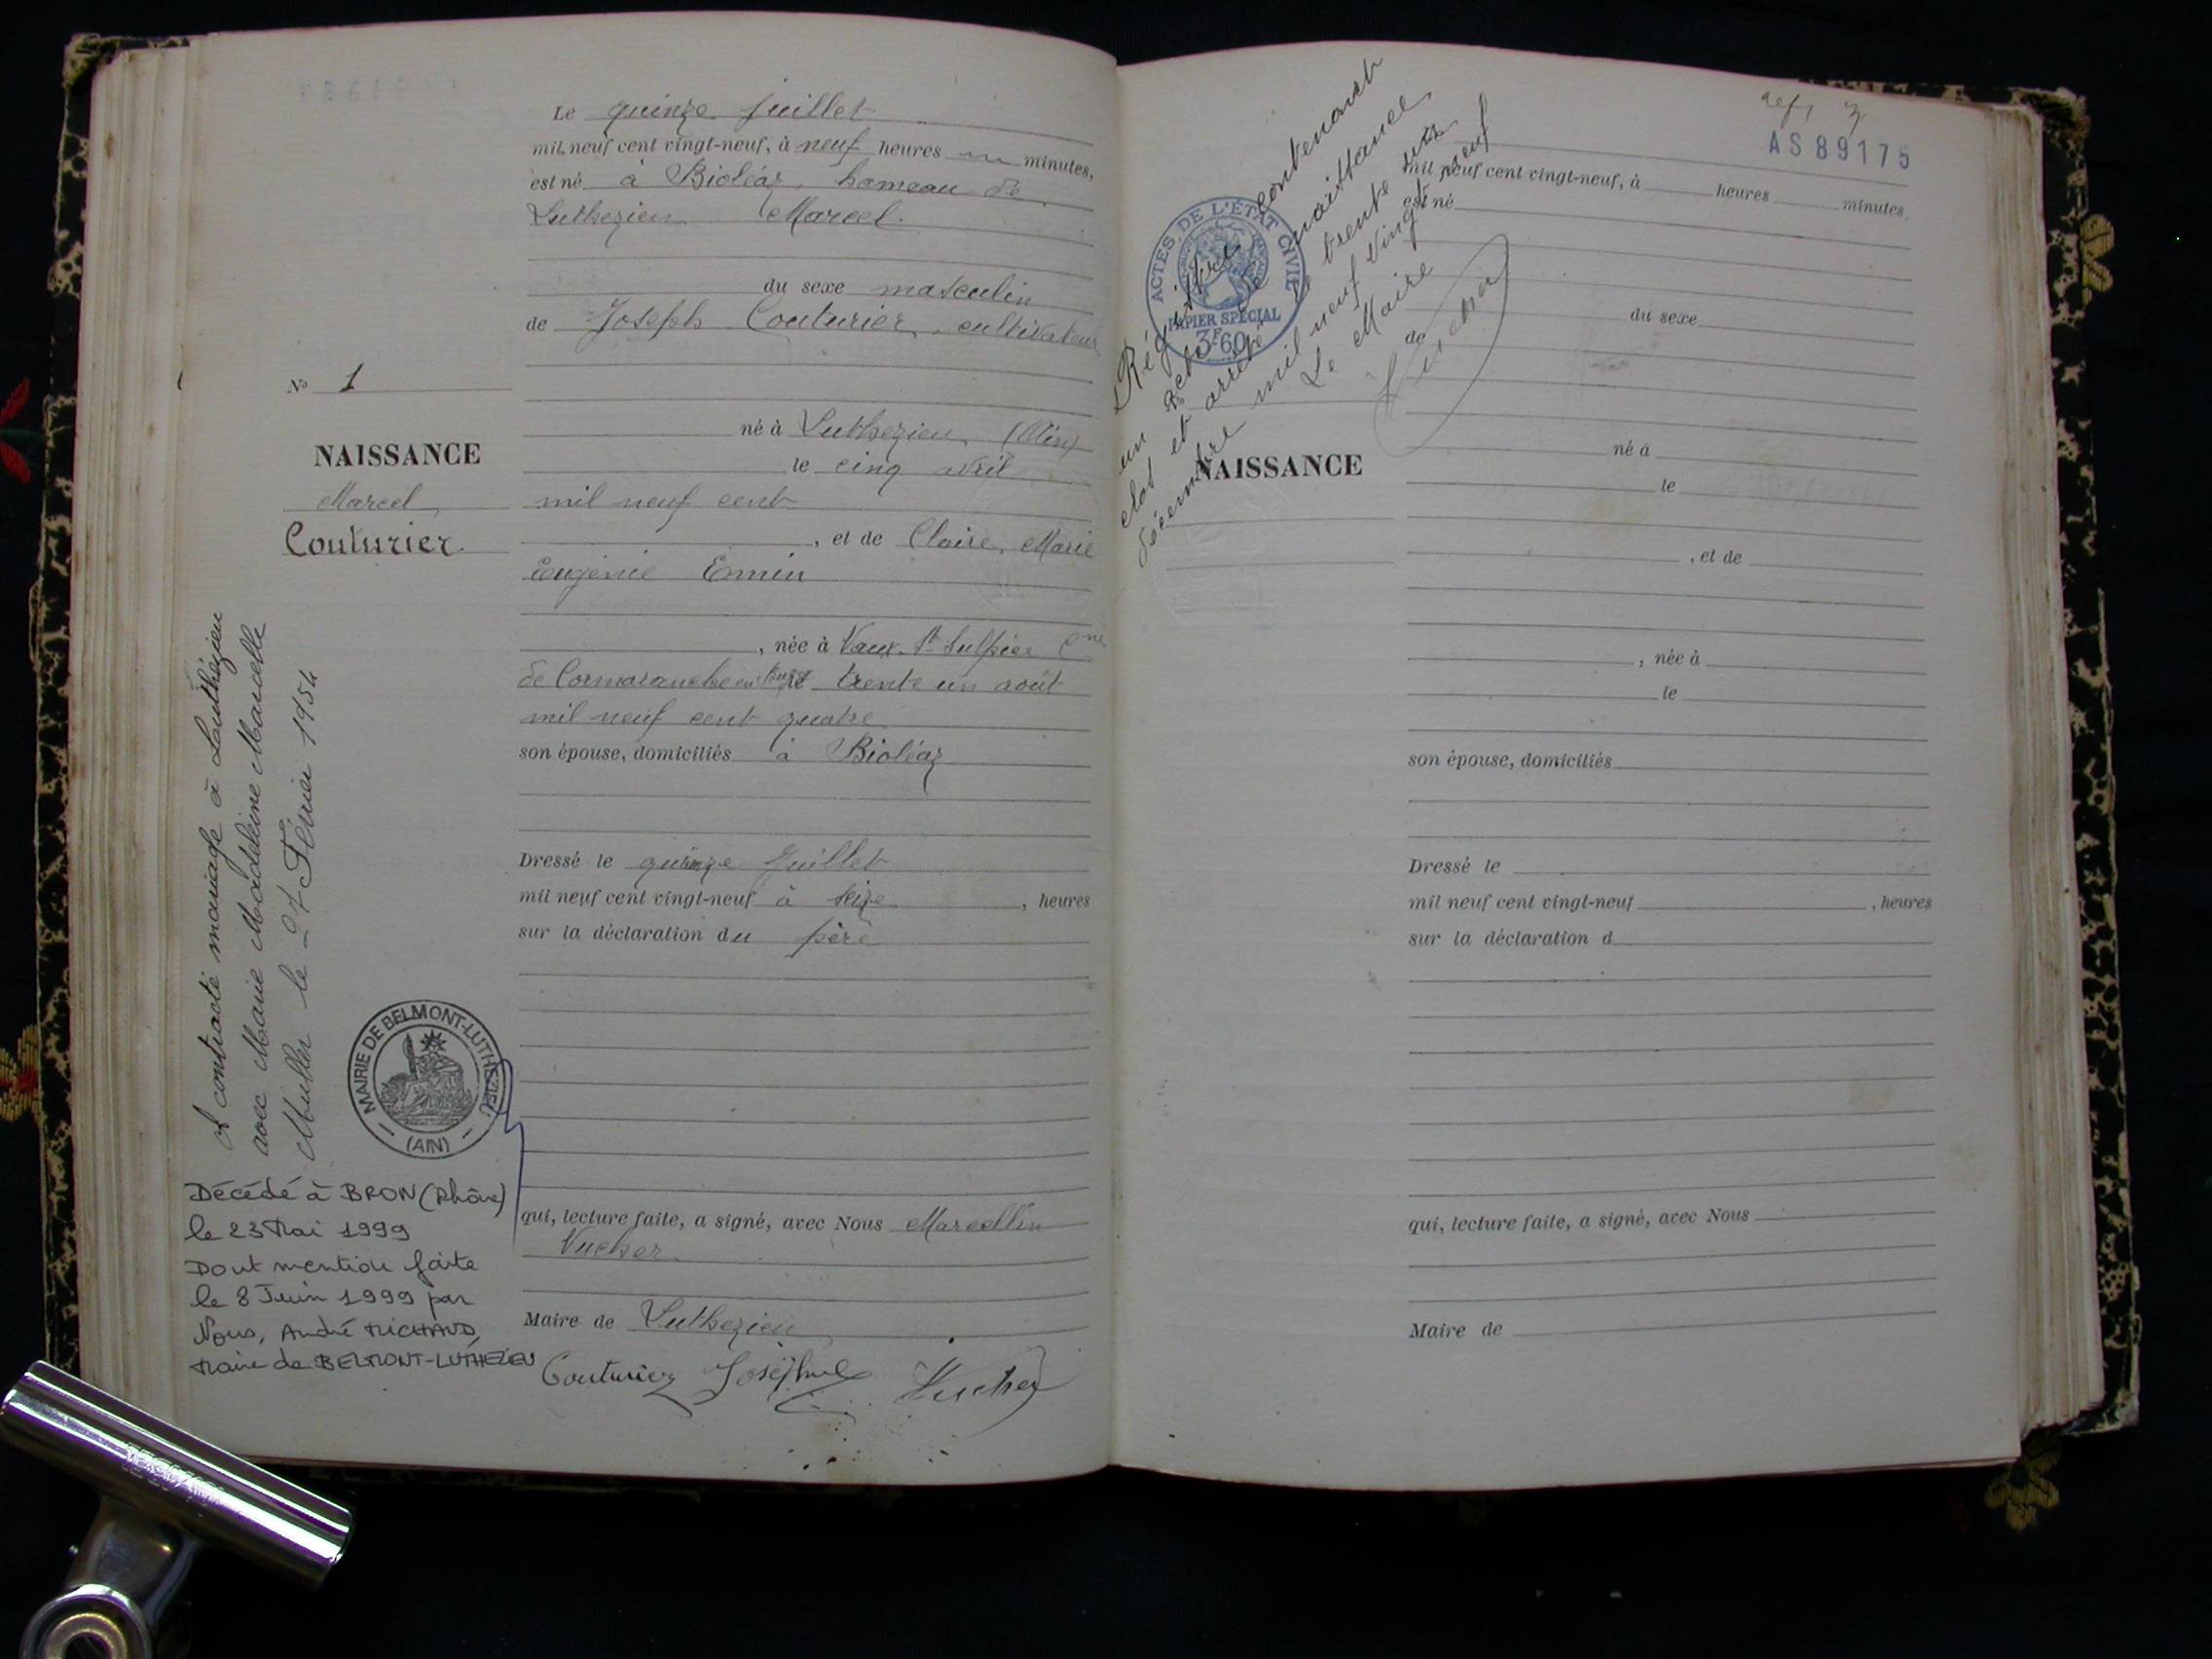 Le quinze Juillet
mil neuf cent vingt-neuf, à neuf heures minutes,
est né à Bioléaz, hameau de
Luthezieu Marcel.
du sexe masculin
de Joseph Couturier, cultivateur
No 1
né à Luthezieu (Ain)
NAISSANCE
le cinq avril
Marcel
mil neuf cent
Couturier.
, et de Claire, Marie
Eugénie Ermin
, née à Vaux-St Sulpice Cne
de Cormaranche en Bugey le trente un août
mil neuf cent quatre
son épouse, domiciliés à Bioléaz
Dressé le quinze Juillet
mil neuf cent vingt-neuf à seize , heures
sur la déclaration du père
qui, lecture faite, a signé, avec Nous Marcellin
Vucher
Maire de Luthezieu
Couturier Joseph Vucher
A contracté mariage à Luthézieu
avec Marie Madeleine Marcelle
Muller le Février 1954
MAIRIE DE BELMONT-LUTHEZIEU
(AIN)
Décédé à BRON (Rhône)
le 23 Mai 1999
Dont mention faite
le 8 Juin 1999 par
Nous, André MICHAUD,
Maire de BELMONT-LUTHEZIEU
AS 89175
Régistre contenant
un acte de naissance
clos et arrêté le trente un
décembre mil neuf vingt neuf
Le Maire
Vucher
ACTES DE L'ÉTAT CIVIL
PAPIER SPÉCIAL
3F60
mil neuf cent vingt-neuf, à heures minutes.
est né
du sexe
de
né à
NAISSANCE
le
, et de
, née à
le
son épouse, domiciliés
Dressé le
mil neuf cent vingt-neuf , heures
sur la déclaration d
qui, lecture faite, a signé, avec Nous
Maire de